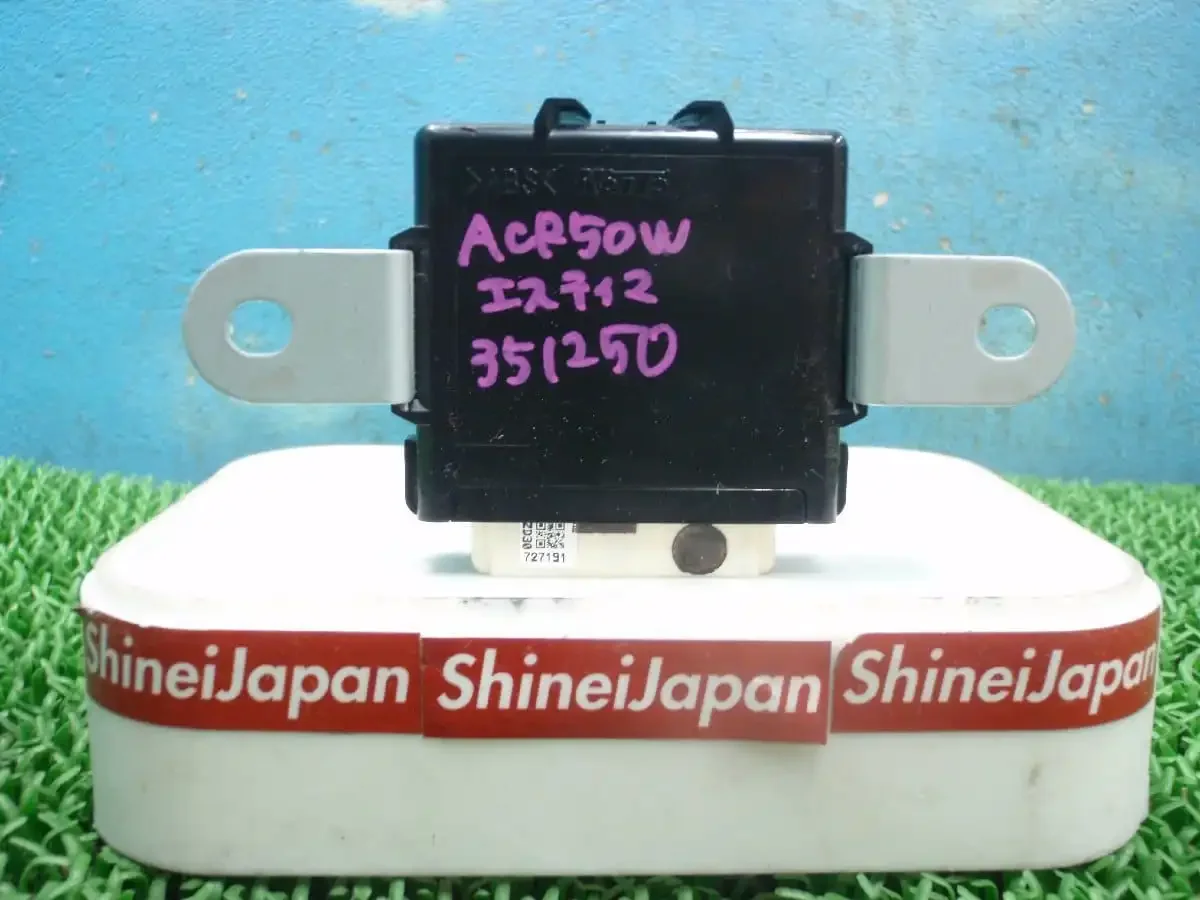 ACR50W
エスティマ
351250
727191
ShineiJapan
ShineiJapan
ShineiJapan